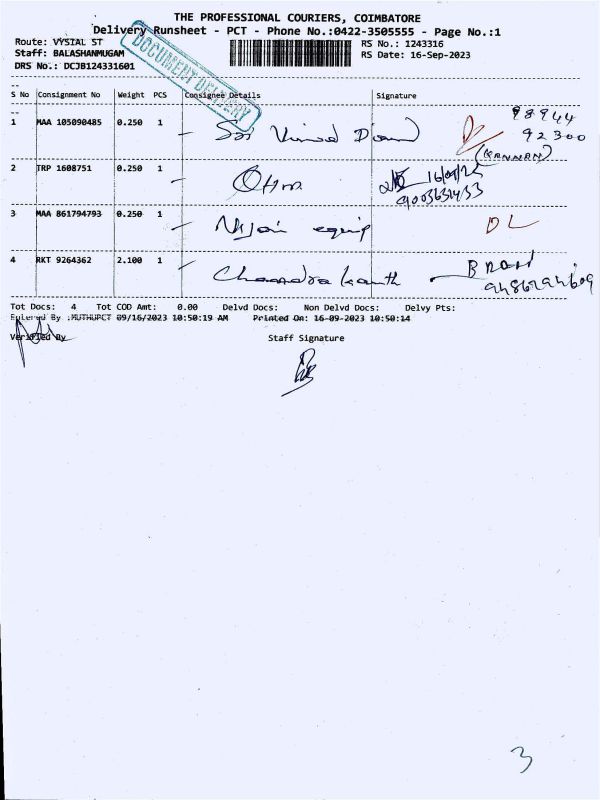 THE PROFESSIONAL COURIERS, COIMBATORE
Delivery Runsheet - PCT - Phone No.:0422-3505555 - Page No.:1
Route: VYSIAL ST
RS No.: 1243316
Staff: BALASHANMUGAM
RS Date: 16-Sep-2023
DRS No.: DCJB124331601
DOCUMENT DELIVERY
S No Consignment No Weight PCS Consignee Details Signature
1 MAA 105090485 0.250 1 Sri Vinod 98944
92300
(KANNAN)
2 TRP 1608751 0.250 1 Ohm
3 MAA 861794793 0.250 1 equip DL
4 RKT 9264362 2.100 1 Chandra kanth
Tot Docs: 4 Tot COD Amt: 0.00 Delvd Docs: Non Delvd Docs: Delvy Pts:
Entered By :MUTHUPCT 09/16/2023 10:50:19 AM Printed On: 16-09-2023 10:50:14
Verified By Staff Signature
3